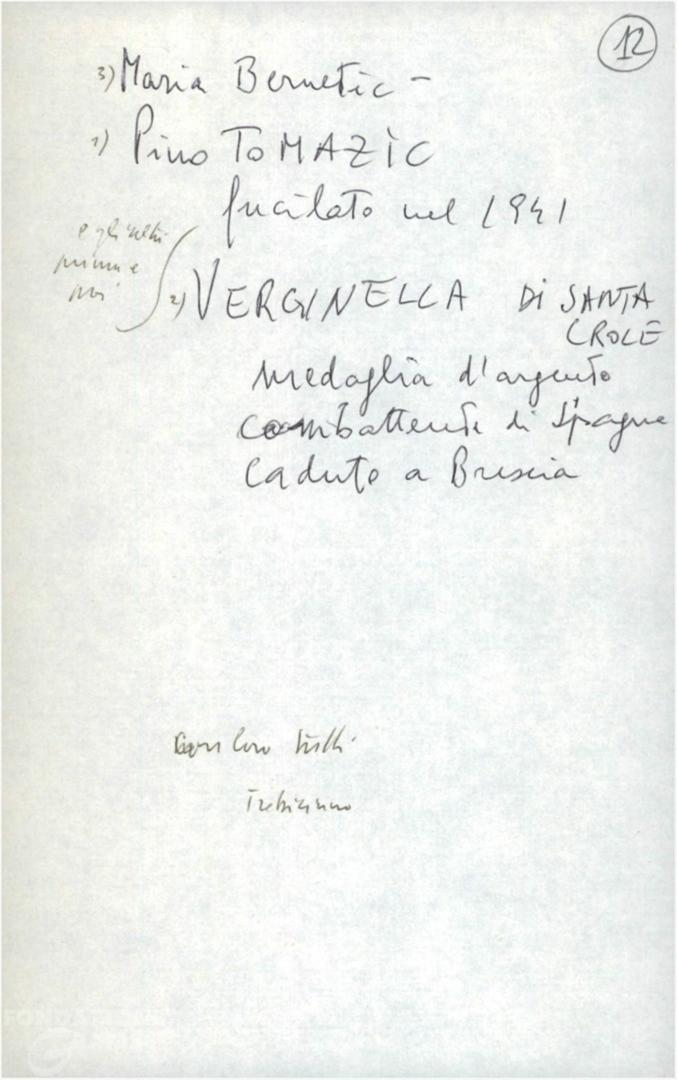 12
3) Maria Bernetic -
1) Pino TOMAZÌC
fucilato nel 1941
e gli altri
prima e
poi
2) VERGINELLA DI SANTA
CROCE
medaglia d'argento
combattente di Spagna
caduto a Brescia
con loro tutti
Trebiciano
FONDAZIONE